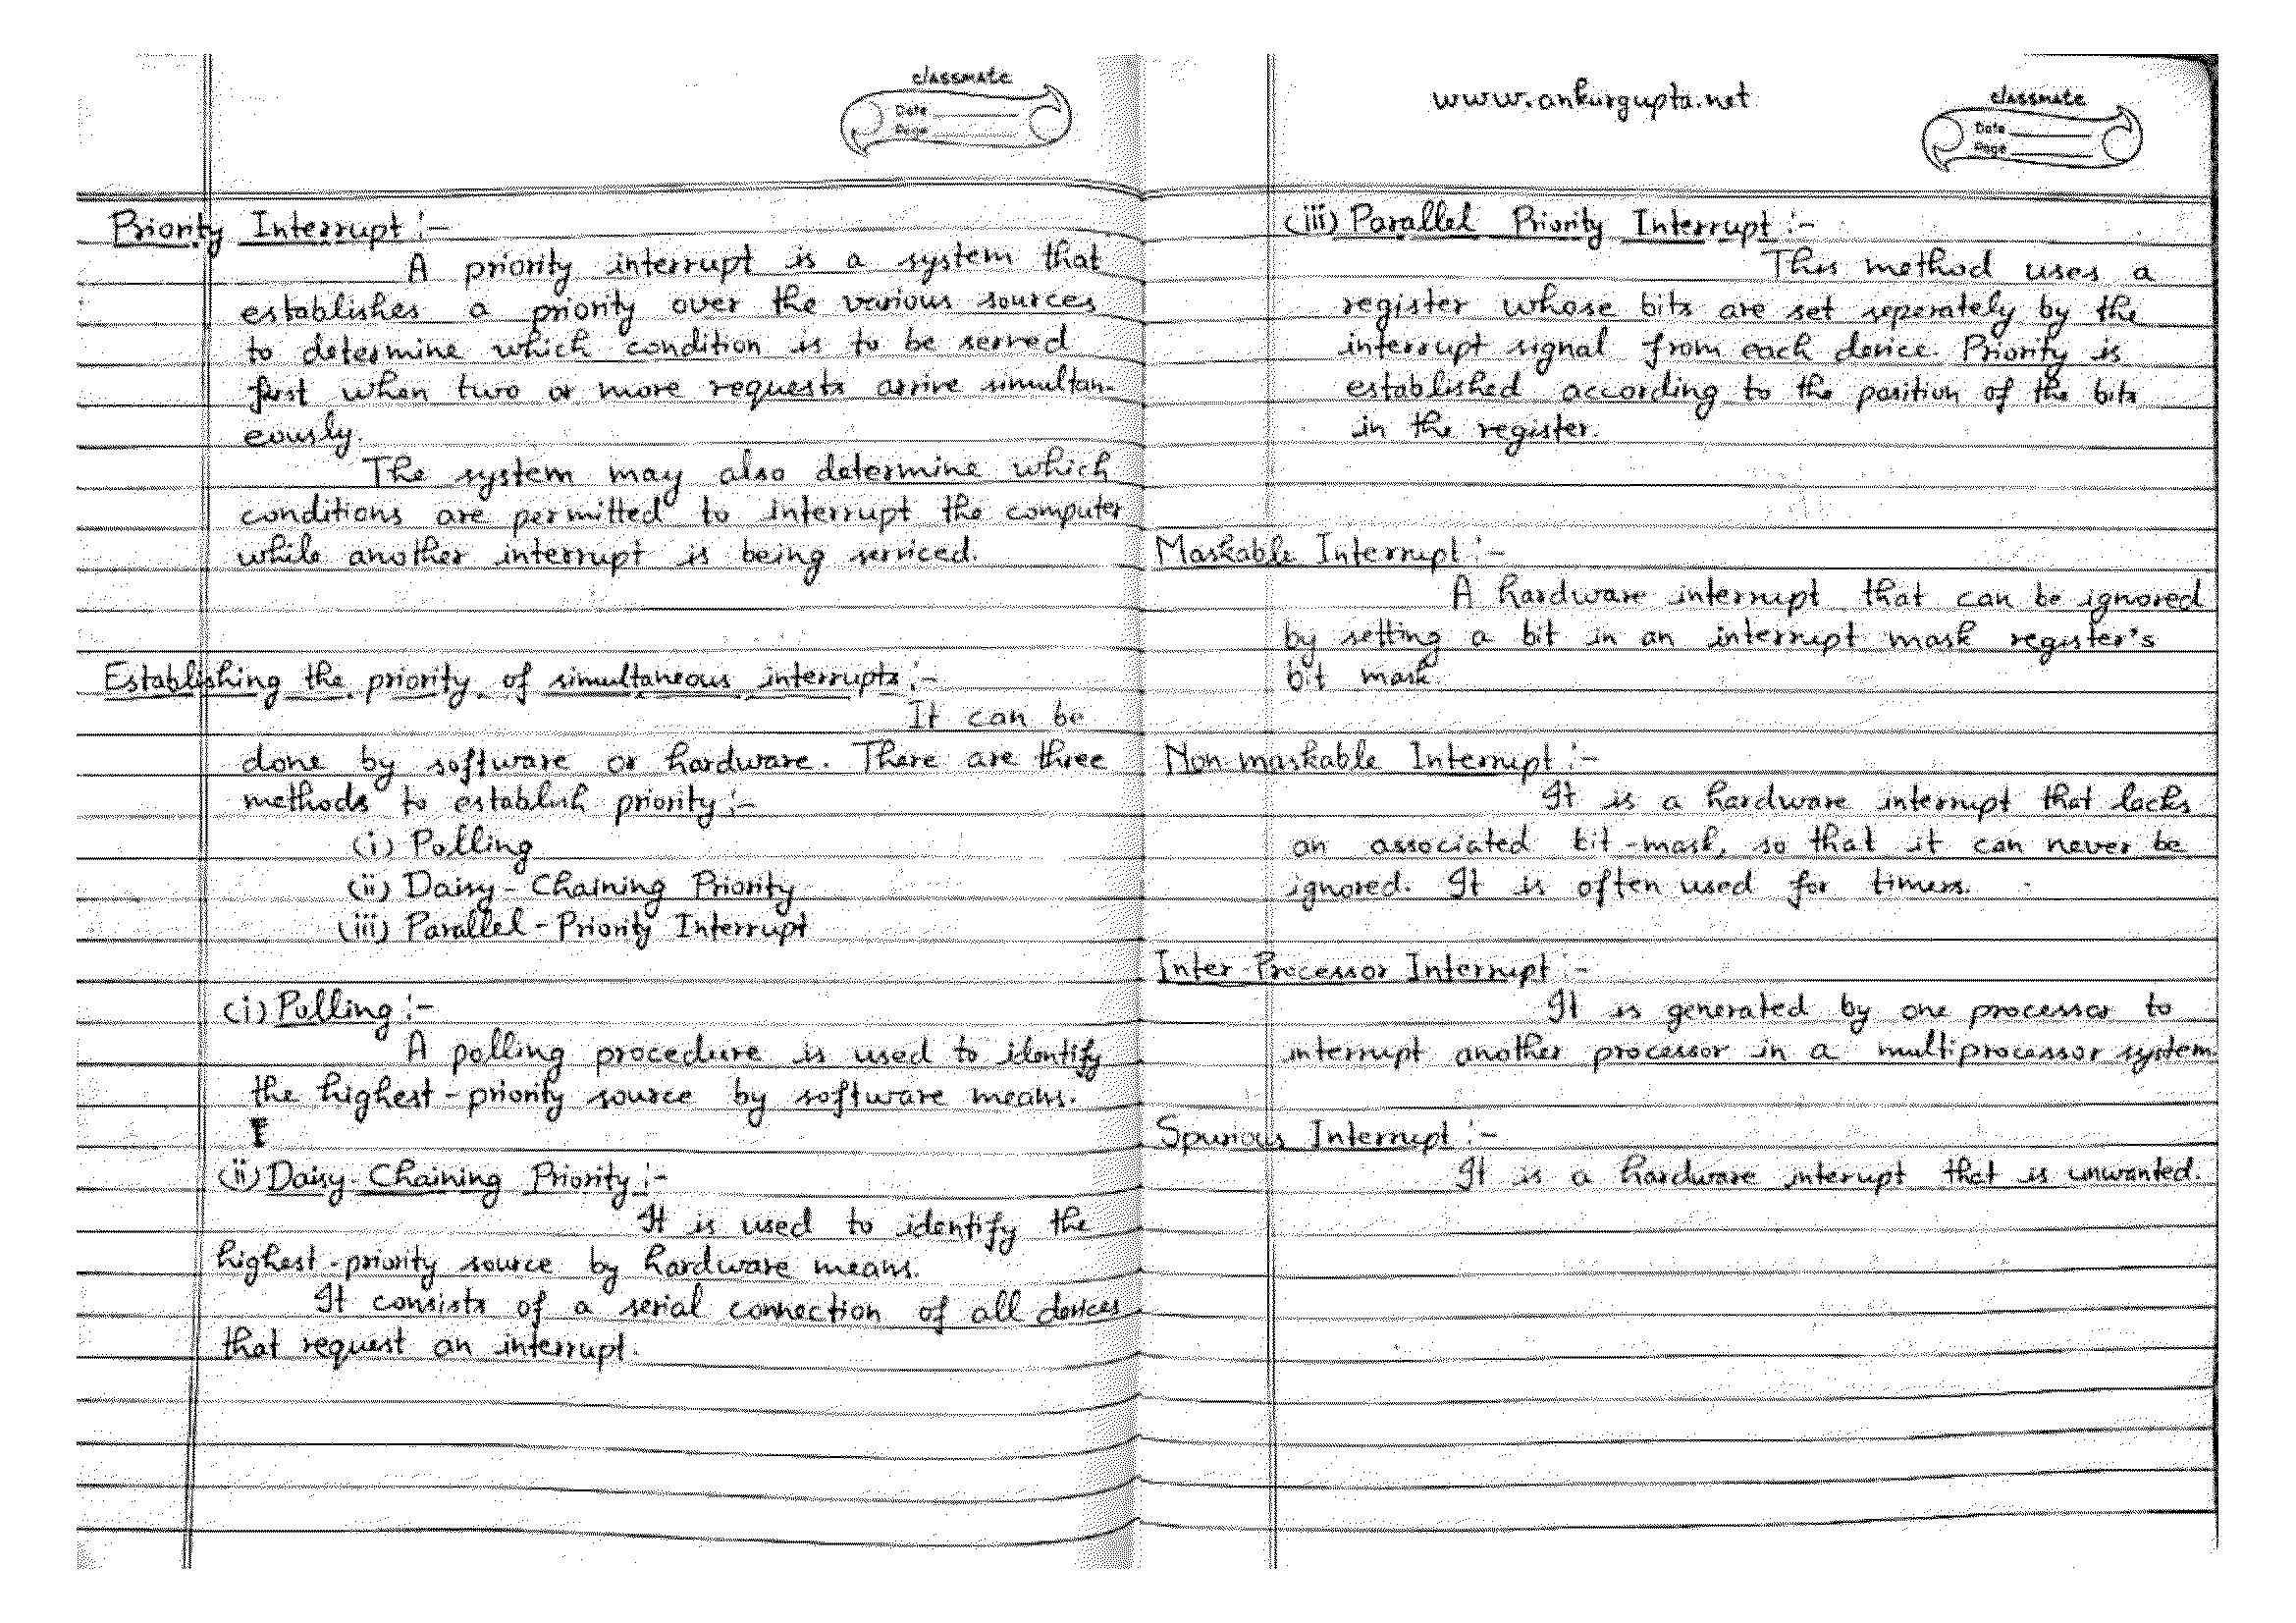 classmate
Date
Page
Priority Interrupt :-
A priority interrupt is a system that
establishes a priority over the various sources
to determine which condition is to be served
first when two or more requests arrive simultan-
eously.
The system may also determine which
conditions are permitted to interrupt the computer
while another interrupt is being serviced.
Establishing the priority of simultaneous interrupts :-
It can be
done by software or hardware. There are three
methods to establish priority :-
(i) Polling
(ii) Daisy-Chaining Priority
(iii) Parallel-Priority Interrupt
(i) Polling :-
A polling procedure is used to identify
the highest-priority source by software means.
(ii) Daisy-Chaining Priority :-
It is used to identify the
highest-priority source by hardware means.
It consists of a serial connection of all devices
that request an interrupt.
www.ankurgupta.net
classmate
Date
Page
(iii) Parallel Priority Interrupt :-
This method uses a
register whose bits are set seperately by the
interrupt signal from each device. Priority is
established according to the position of the bits
in the register.
Maskable Interrupt :-
A hardware interrupt that can be ignored
by setting a bit in an interrupt mask register's
bit mask.
Non maskable Interrupt :-
It is a hardware interrupt that lacks
an associated bit-mask, so that it can never be
ignored. It is often used for timers.
Inter Processor Interrupt :-
It is generated by one processor to
interrupt another processor in a multiprocessor system.
Spurious Interrupt :-
It is a hardware interupt that is unwanted.